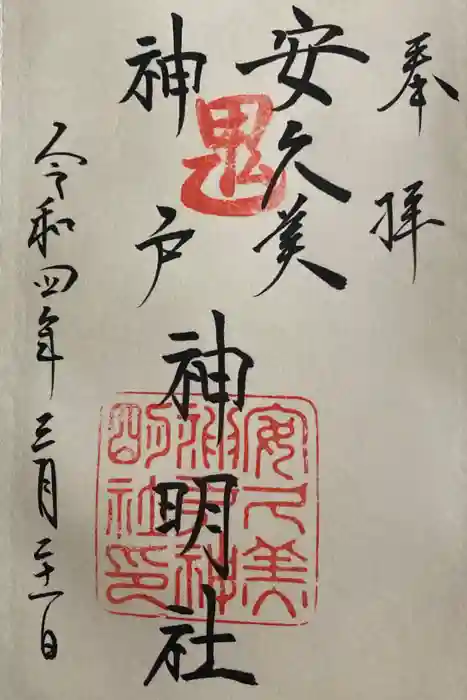 奉拝
安久美
神戸
神明社
鬼
安久美
神戸神
明社印
令和四年三月二十一日